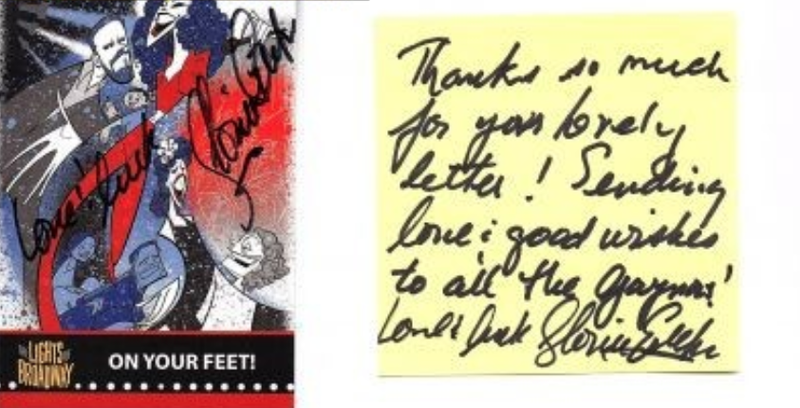 Love & luck
Gloria Estefan
LIGHTS
BROADWAY
ON YOUR FEET!
Thanks so much
for your lovely
letter! Sending
love & good wishes
to all the
Love & luck Gloria Estefan